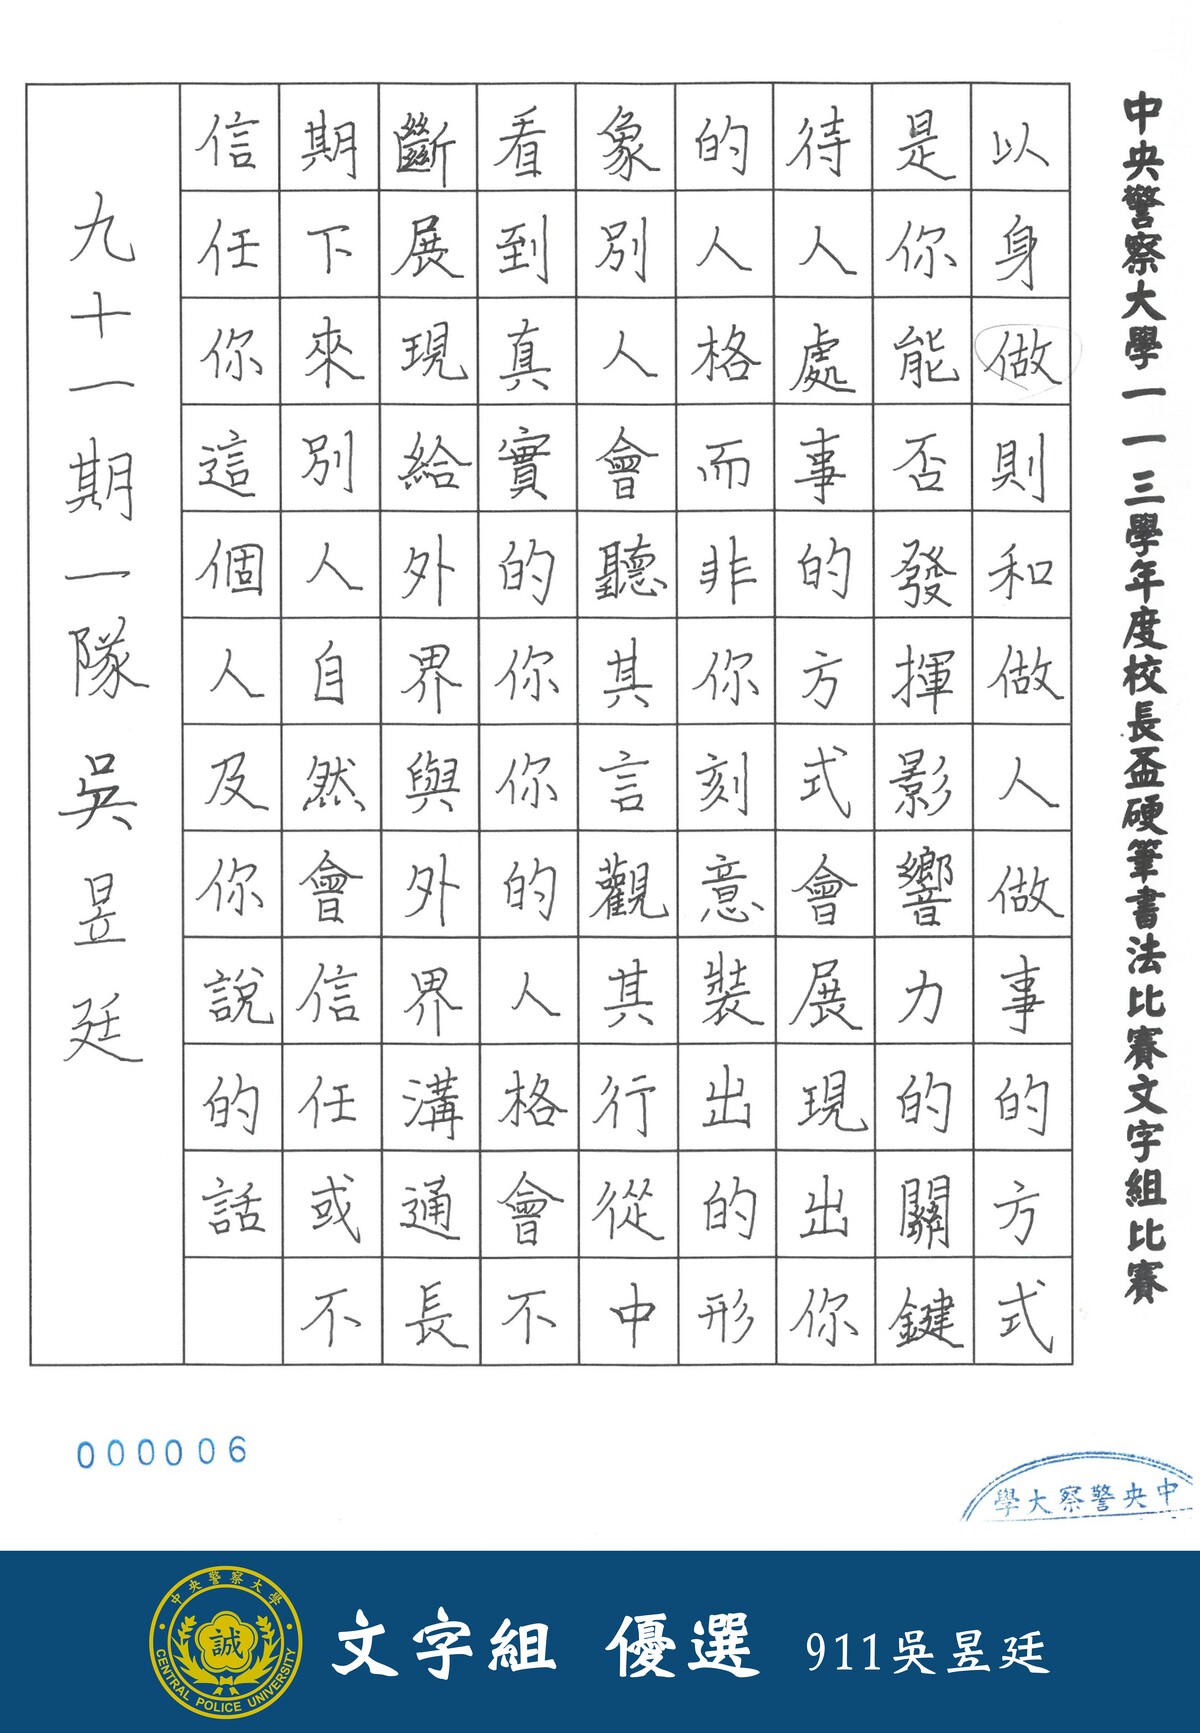 中央警察大學一一三學年度校長盃硬筆書法比賽文字組比賽
以身做則和做人做事的方式
是你能否發揮影響力的關鍵
待人處事的方式會展現出你
的人格而非你刻意裝出的形
象別人會聽其言觀其行從中
看到真實的你你的人格會不
斷展現給外界與外界溝通長
期下來別人自然會信任或不
信任你這個人及你說的話
九十一期一隊吳昱廷
000006
中央警察大學
中央警察大學
誠
CENTRAL POLICE UNIVERSITY
文字組 優選 911吳昱廷